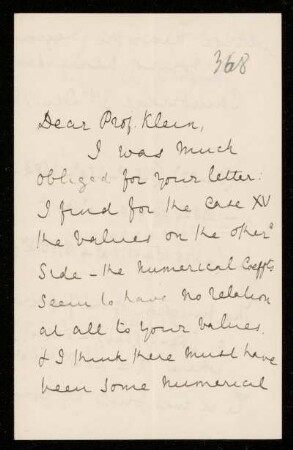 368
Dear Prof. Klein,
I was much
obliged for your letter:
I find for the case XV
the values on the other
side – the numerical Coeffts
seem to have no relation
at all to your values.
& I think there must have
been some numerical